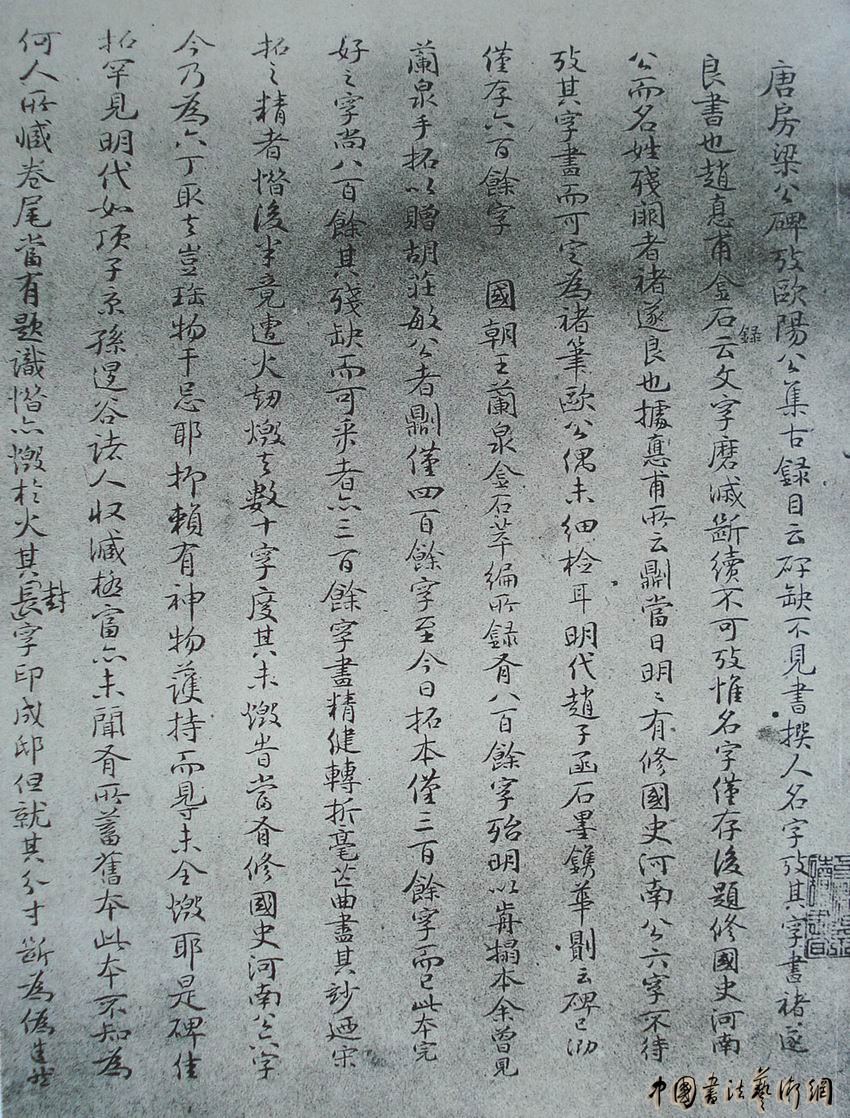 唐房梁公碑攷歐陽公集古錄目云碑缺不見書撰人名字攷其字畫褚遂
良書也趙惪甫金石錄云文字磨滅斷續不可攷惟名字僅存後題修國史河南
公而名姓殘闕者褚遂良也據惪甫所云則當日明〻有修國史河南公六字不待
攷其字畫而可定為褚筆歐公偶未細檢耳明代趙子函石墨鐫華則云碑已泐
僅存六百餘字 國朝王蘭泉金石萃編所錄有八百餘字殆明以前搨本余曾見
蘭泉手拓以贈胡莊敏公者則僅四百餘字至今日拓本僅三百餘字而已此本完
好之字尚八百餘其殘缺而可釆者亦三百餘字畫精健轉折毫芒曲盡其妙迺宋
拓之精者惜後半竟遭火劫燬去數十字度其未燬者當有修國史河南公六字
今乃為六丁取去豈珍物干忌耶抑賴有神物護持而得未全燬耶是碑佳
拓罕見明代如項子京孫退谷諸人收藏極富亦未聞有所蓄舊本此本不知為
何人所藏卷尾當有題識惜亦燬於火其長字印成邸但就其分寸斷為偽
封
中國書法藝術網